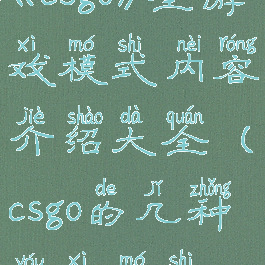 《csgo》全游
xì mó shì nèi róng
戏模式内容
jiè shào dà quán
介绍大全（
de jǐ zhǒng
csgo的几种
yóu xì mó shì